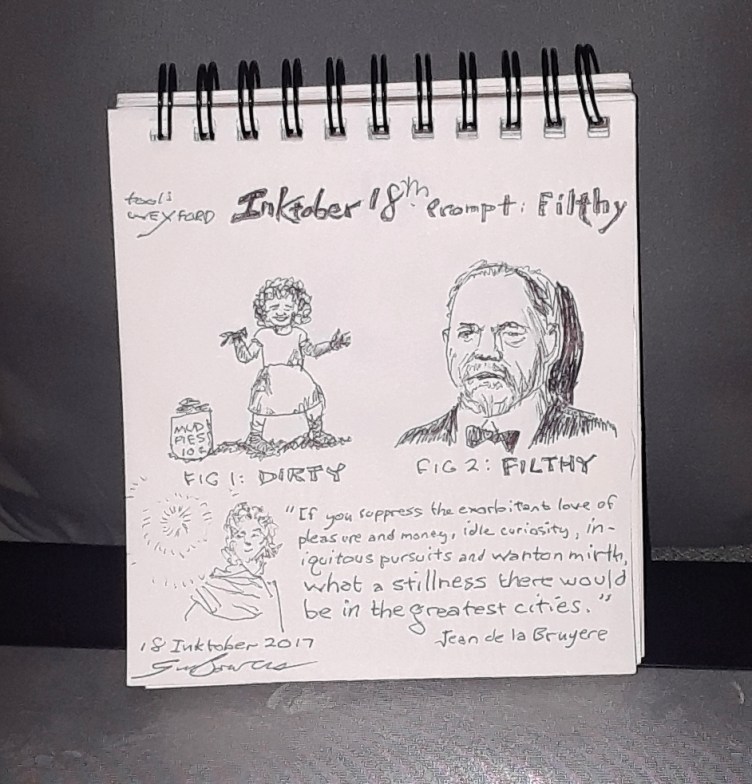 tools
WEXFORD
Inktober 18th Prompt: Filthy
MUD
PIES
10¢
FIG 1: DIRTY
FIG 2: FILTHY
"If you suppress the exorbitant love of
pleasure and money, idle curiosity, in-
iquitous pursuits and wanton mirth,
what a stillness there would
be in the greatest cities."
Jean de la Bruyere
18 Inktober 2017